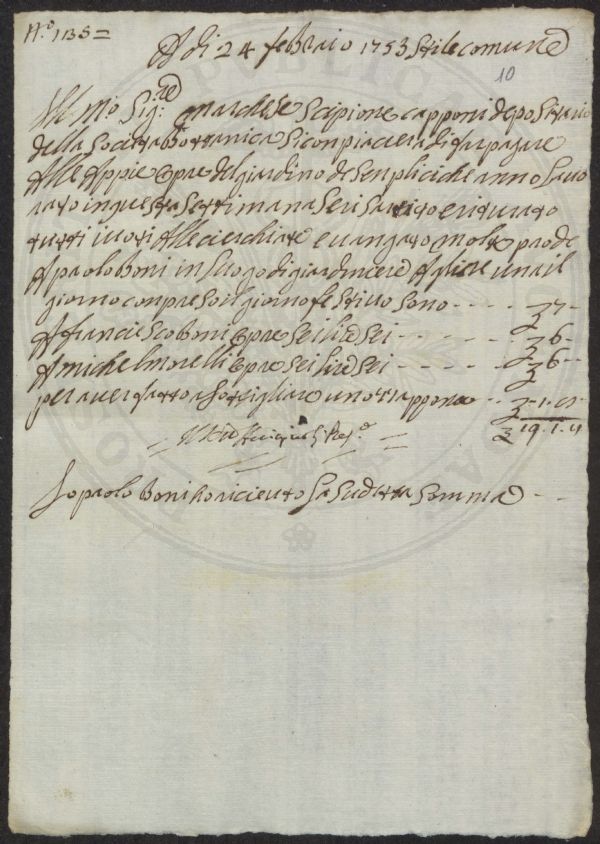 N.º 1135 =
A di 24 febraio 1753 stile comune
10
Ill mo Sig:re marchese Scipione capponi depositario
della Società Bottanica Siconpiacera di far pagare
Alle Appie opre del giardino de Senplici che anno lavo
rato in questa Settimana
tutti i vori Alle cierchiate e vangato molte prode
A paolo Boni in luogo di giardinere A 7 lire una il
giorno conpreso il giorno festivo Sono - - - - - 7 -
A franciesco Boni opre Sei lire Sei - - - - - - 6 -
A michel morelli opre Sei lire Sei - - - - - 6 -
per aver fatto un trappono - - 1 -
19. 1. 4
Io paolo Boni ho riceuto la Sudetta Somma - - -